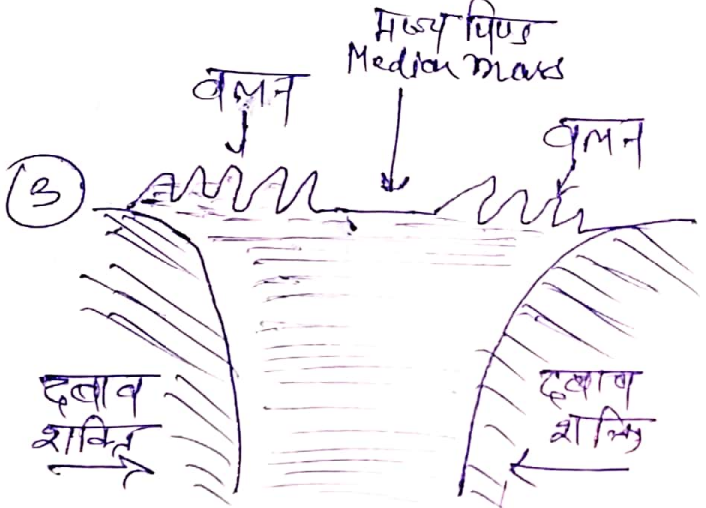 मध्य पिण्ड
Median mass
वलन
वलन
3
दबाव
शक्ति
दबाव
शक्ति